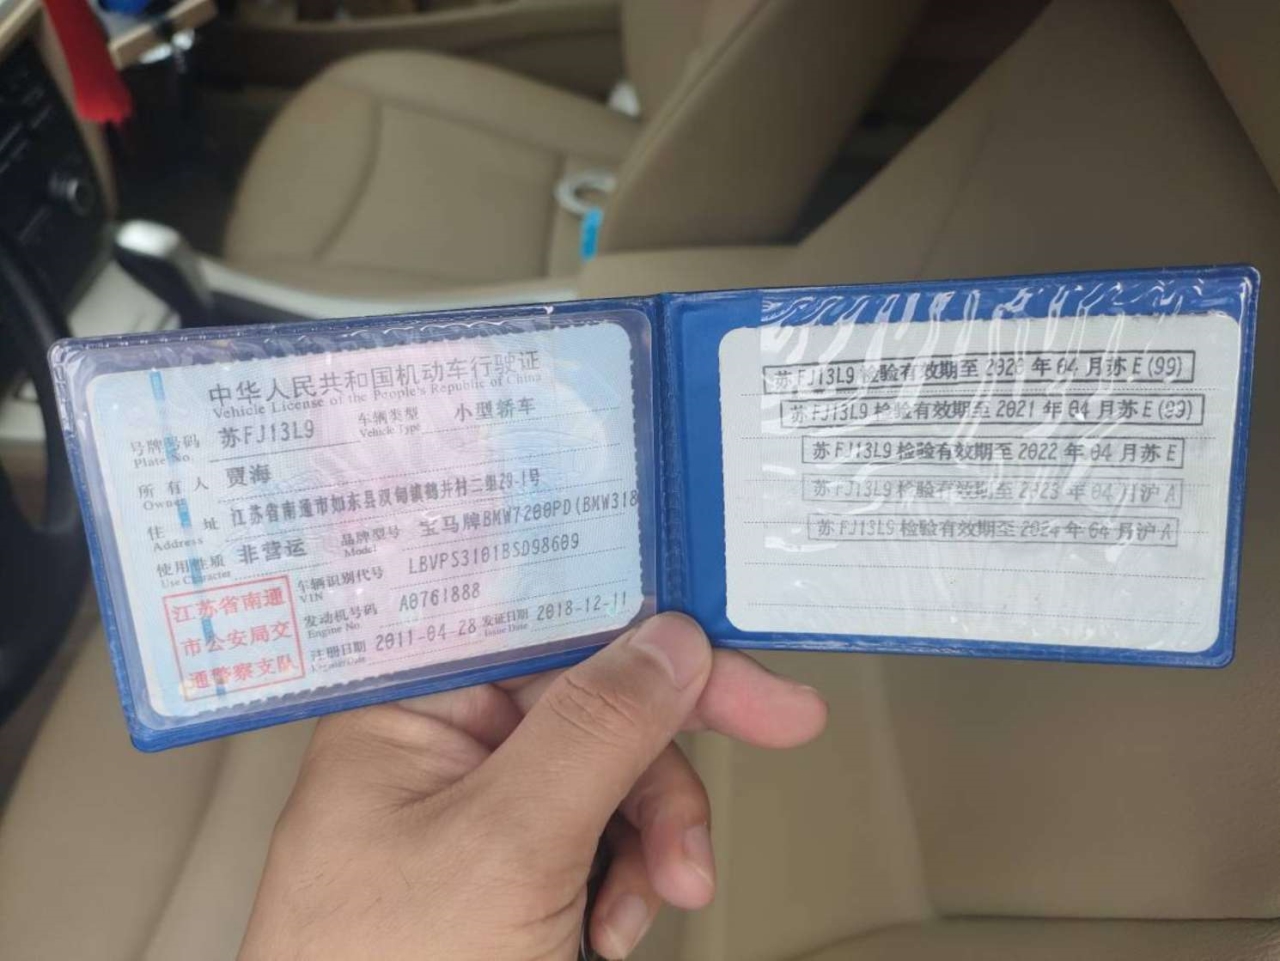 中华人民共和国机动车行驶证
Vehicle License of the People's Republic of China
号牌号码 苏FJ13L9 车辆类型 小型轿车
Plate No. Vehicle Type
所有人 贾海
Owner
住址 江苏省南通市如东县双甸镇鹤井村二组29-1号
Address
使用性质 非营运 品牌型号 宝马牌BMW7200PD(BMW318
Use Character Model
车辆识别代号 LBVPS3101BSD98609
VIN
发动机号码 A0761888
Engine No.
注册日期 2011-04-28 发证日期 2018-12-11
Register Date Issue Date
江苏省南通
市公安局交
通警察支队
苏FJ13L9 检验有效期至 2020 年 04 月苏 E (99)
苏FJ13L9 检验有效期至 2021 年 04 月苏 E (99)
苏FJ13L9 检验有效期至 2022 年 04 月苏 E
苏FJ13L9 检验有效期至 2023 年 04 月沪 A
苏FJ13L9 检验有效期至 2024 年 04 月沪 A